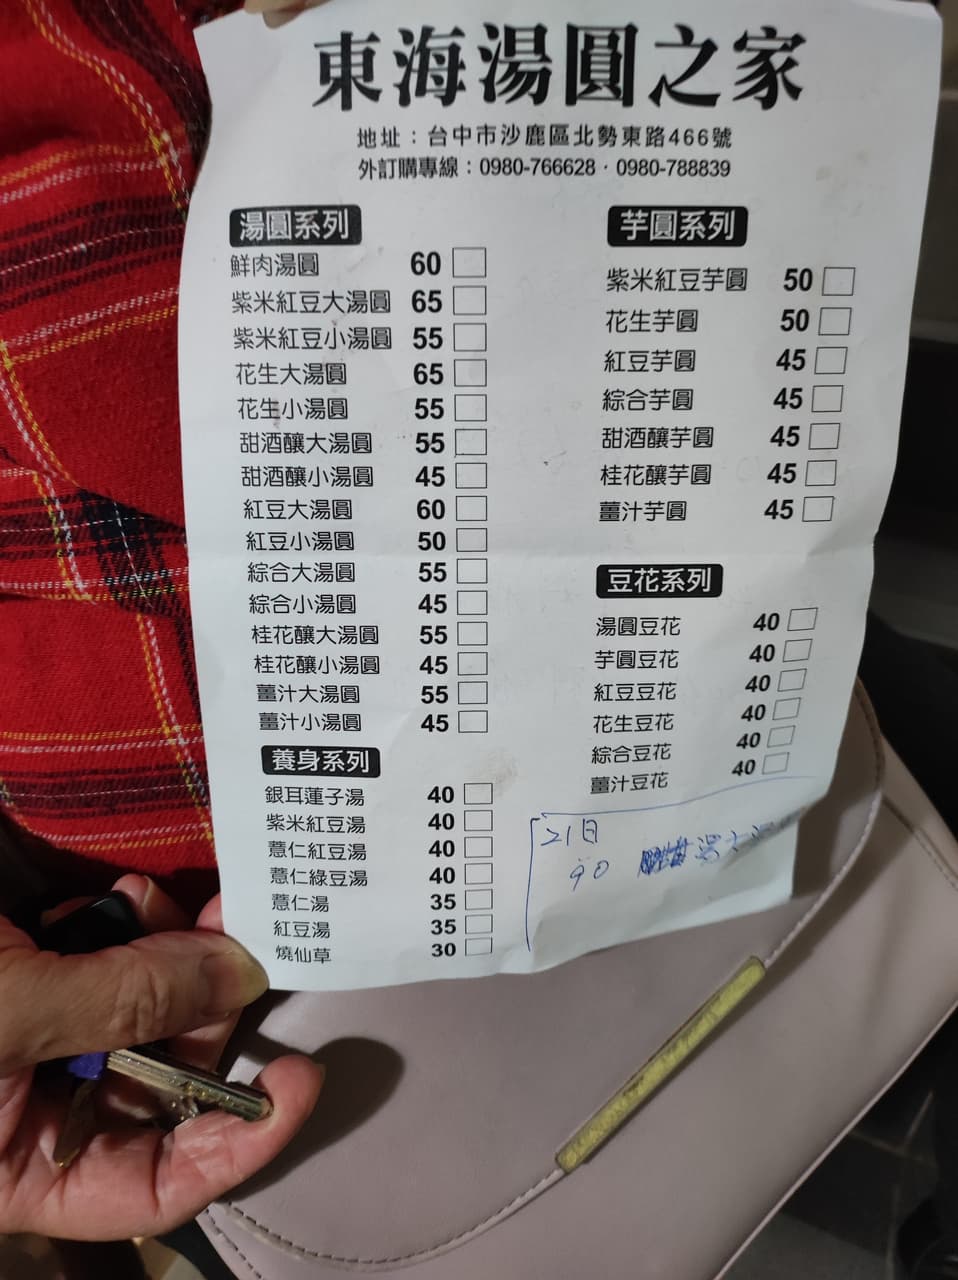 東海湯圓之家
地址：台中市沙鹿區北勢東路466號
外訂購專線：0980-766628·0980-788839
湯圓系列
鮮肉湯圓 60
紫米紅豆大湯圓 65
紫米紅豆小湯圓 55
花生大湯圓 65
花生小湯圓 55
甜酒釀大湯圓 55
甜酒釀小湯圓 45
紅豆大湯圓 60
紅豆小湯圓 50
綜合大湯圓 55
綜合小湯圓 45
桂花釀大湯圓 55
桂花釀小湯圓 45
薑汁大湯圓 55
薑汁小湯圓 45
養身系列
銀耳蓮子湯 40
紫米紅豆湯 40
薏仁紅豆湯 40
薏仁綠豆湯 40
薏仁湯 35
紅豆湯 35
燒仙草 30
芋圓系列
紫米紅豆芋圓 50
花生芋圓 50
紅豆芋圓 45
綜合芋圓 45
甜酒釀芋圓 45
桂花釀芋圓 45
薑汁芋圓 45
豆花系列
湯圓豆花 40
芋圓豆花 40
紅豆豆花 40
花生豆花 40
綜合豆花 40
薑汁豆花 40
21日
90